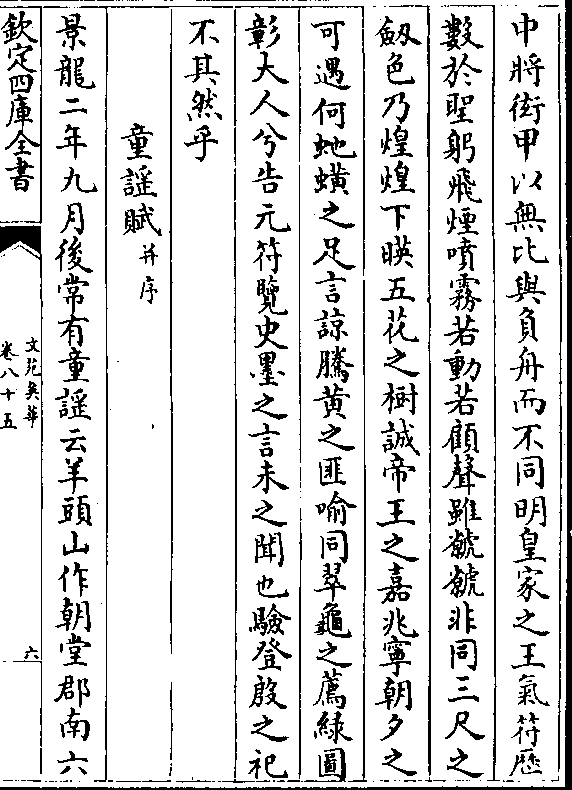 中將銜甲以無比與負舟而不同明皇家之王氣符歷
數於聖躬飛煙噴霧若動若顧聲雖虩虩非同三尺之
劒色乃煌煌下暎五花之樹誠帝王之嘉兆寧朝夕之
可遇何虵蟥之足言諒騰黄之匪喻同翠龜之薦緑圖
彰大人兮告元符覽史墨之言未之聞也驗登殷之祀
不其然乎
童謡賦并序
景龍二年九月後常有童謡云羊頭山作朝堂郡南六
欽定四庫全書
文苑英華
卷八十五
六